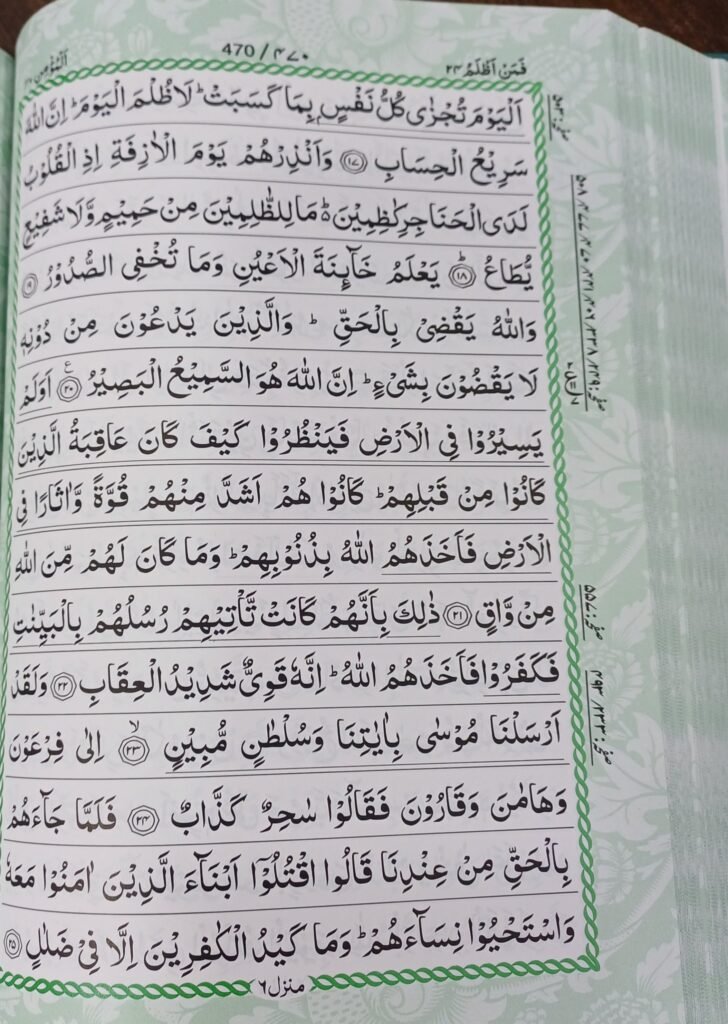 فَمَنْ اَظْلَمُ ٢٤
470 / ۴۷۰
اَلْمُؤْمِن
اَلْيَوْمَ تُجْزٰى كُلُّ نَفْسٍۭ بِمَا كَسَبَتْ ؕ لَا ظُلْمَ الْيَوْمَ ؕ اِنَّ اللّٰهَ
سَرِيْعُ الْحِسَابِ ﴿۱۷﴾ وَاَنْذِرْهُمْ يَوْمَ الْاٰزِفَةِ اِذِ الْقُلُوْبُ
لَدَى الْحَنَاجِرِ كٰظِمِيْنَ ؕ۬ مَا لِلظّٰلِمِيْنَ مِنْ حَمِيْمٍ وَّلَا شَفِيْعٍ
يُّطَاعُ ؕ﴿۱۸﴾ يَعْلَمُ خَآئِنَةَ الْاَعْيُنِ وَمَا تُخْفِى الصُّدُوْرُ ﴿۱۹﴾
وَاللّٰهُ يَقْضِىْ بِالْحَقِّ ؕ وَالَّذِيْنَ يَدْعُوْنَ مِنْ دُوْنِهٖ
لَا يَقْضُوْنَ بِشَىْءٍ ؕ اِنَّ اللّٰهَ هُوَ السَّمِيْعُ الْبَصِيْرُ ﴿۲۰﴾ ع اَوَلَمْ
يَسِيْرُوْا فِى الْاَرْضِ فَيَنْظُرُوْا كَيْفَ كَانَ عَاقِبَةُ الَّذِيْنَ
كَانُوْا مِنْ قَبْلِهِمْ ؕ كَانُوْا هُمْ اَشَدَّ مِنْهُمْ قُوَّةً وَّاٰثَارًا فِى
الْاَرْضِ فَاَخَذَهُمُ اللّٰهُ بِذُنُوْبِهِمْ ؕ وَمَا كَانَ لَهُمْ مِّنَ اللّٰهِ
مِنْ وَّاقٍ ﴿۲۱﴾ ذٰلِكَ بِاَنَّهُمْ كَانَتْ تَّاْتِيْهِمْ رُسُلُهُمْ بِالْبَيِّنٰتِ
فَكَفَرُوْا فَاَخَذَهُمُ اللّٰهُ ؕ اِنَّهٗ قَوِىٌّ شَدِيْدُ الْعِقَابِ ﴿۲۲﴾ وَلَقَدْ
اَرْسَلْنَا مُوْسٰى بِاٰيٰتِنَا وَسُلْطٰنٍ مُّبِيْنٍ ۙ﴿۲۳﴾ اِلٰى فِرْعَوْنَ
وَهَامٰنَ وَقَارُوْنَ فَقَالُوْا سٰحِرٌ كَذَّابٌ ﴿۲۴﴾ فَلَمَّا جَآءَهُمْ
بِالْحَقِّ مِنْ عِنْدِنَا قَالُوا اقْتُلُوْۤا اَبْنَآءَ الَّذِيْنَ اٰمَنُوْا مَعَهٗ
وَاسْتَحْيُوْا نِسَآءَهُمْ ؕ وَمَا كَيْدُ الْكٰفِرِيْنَ اِلَّا فِىْ ضَلٰلٍ ﴿۲۵﴾
منزل ٦
صفحہ: ۵۵۷
صفحہ: ۲۳۳، ۴۹۳